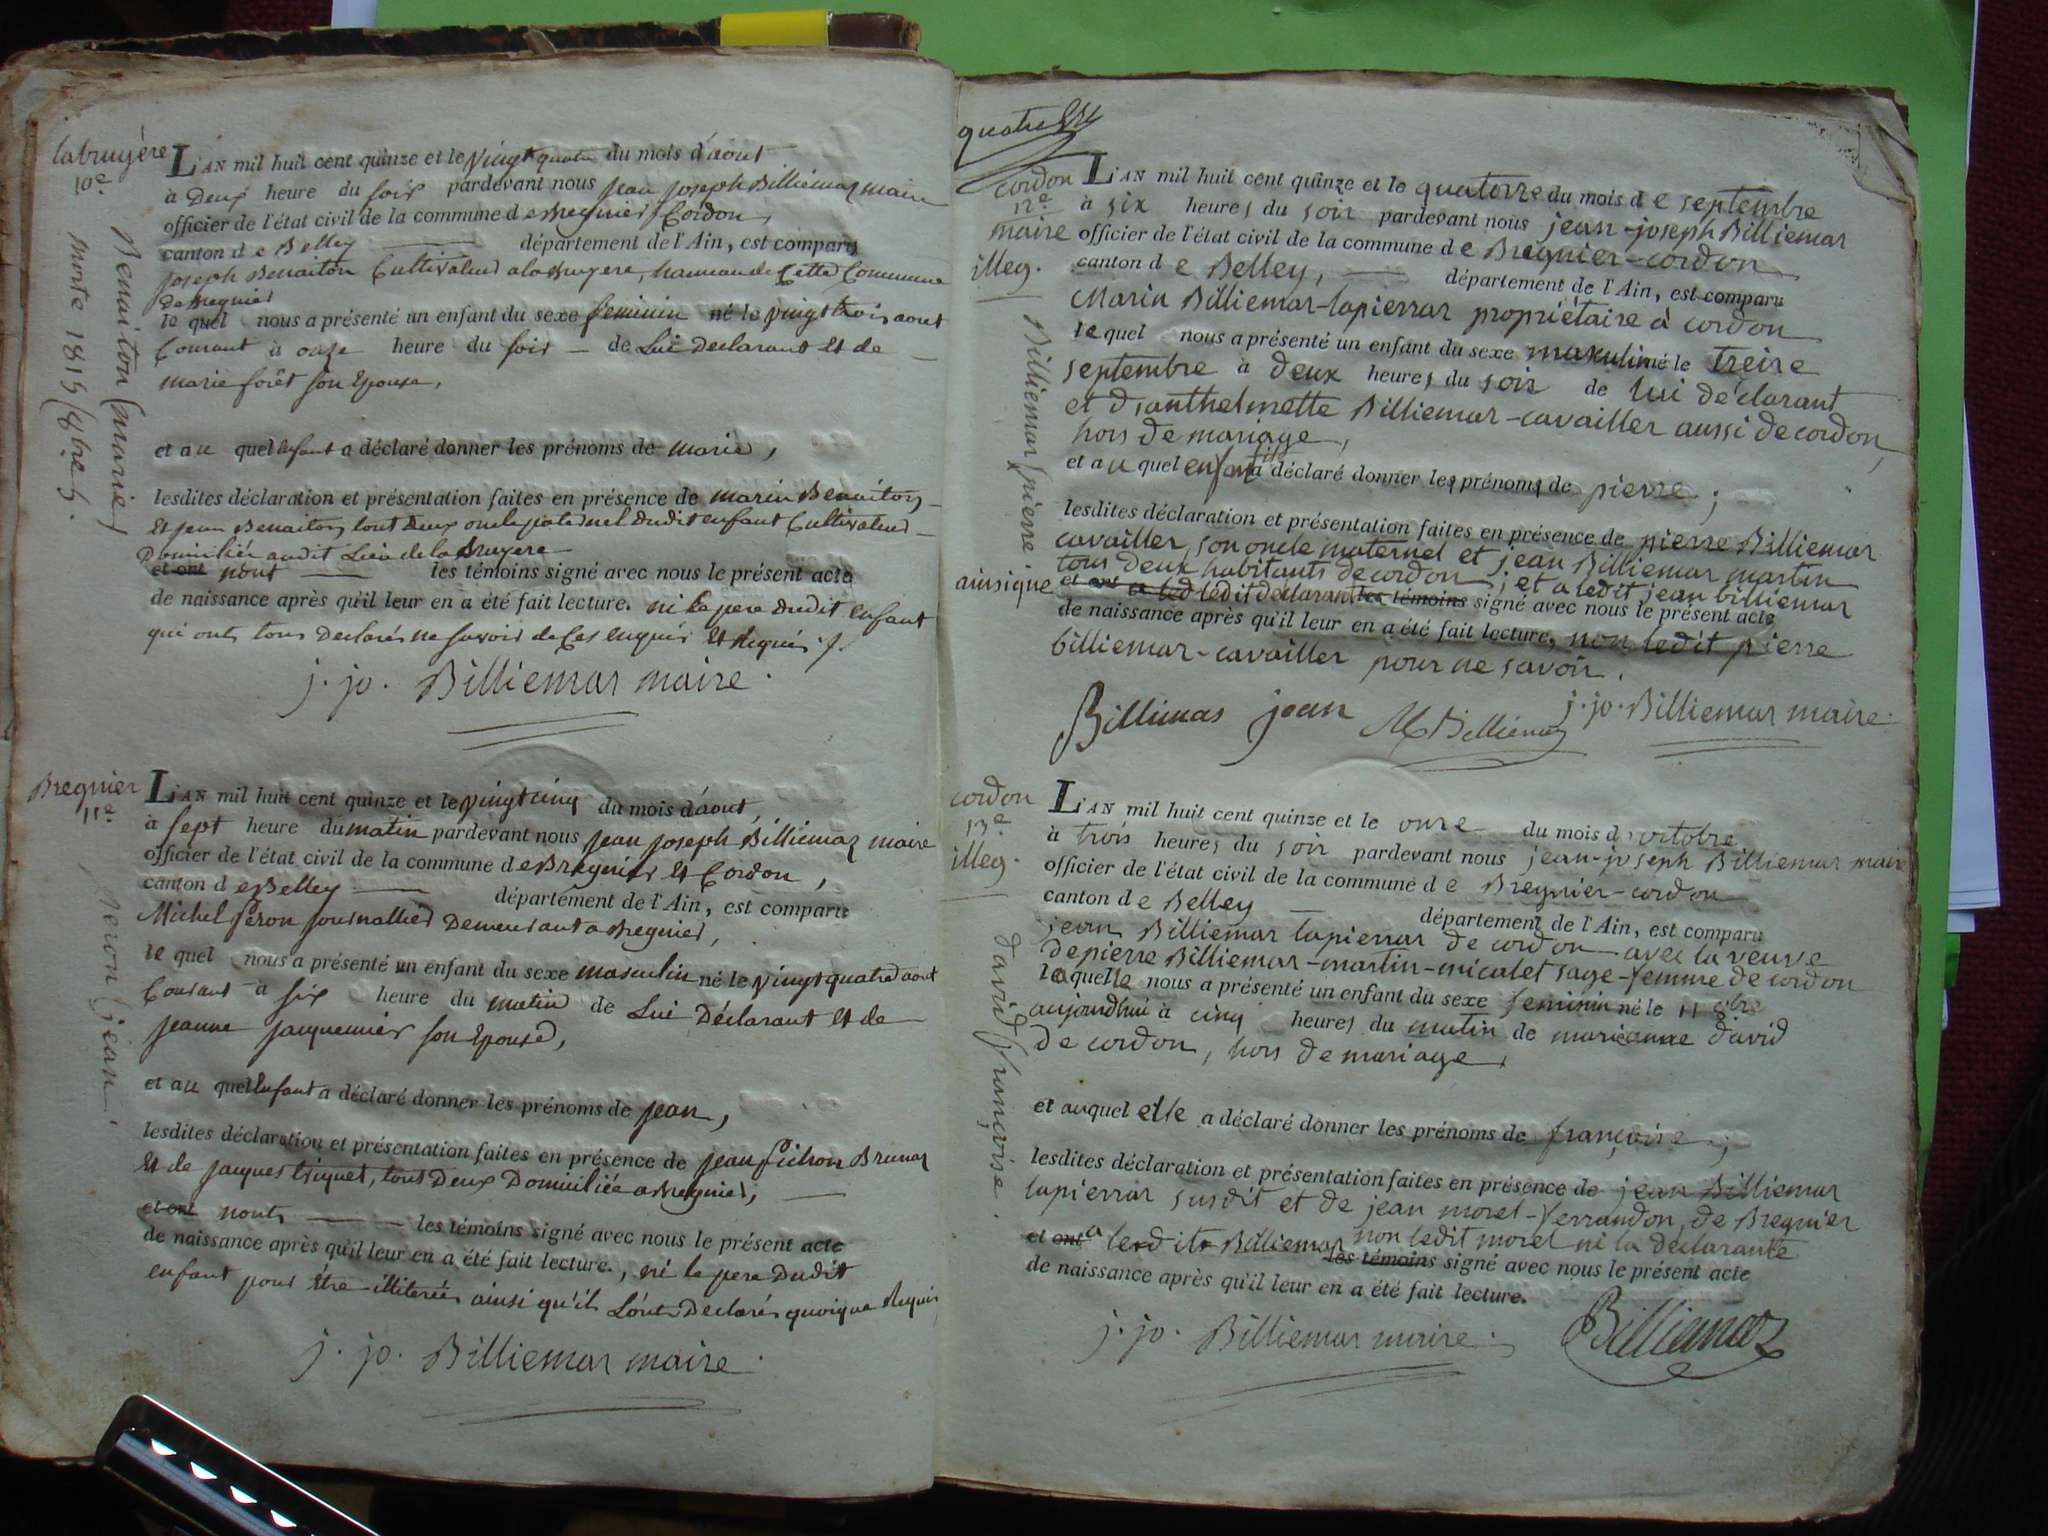 labruyère
10e.
Benaiton (marie)
morte 1815 (8bre 5.
L'AN mil huit cent quinze et le vingt quatre du mois d'aout
à Deux heure du soir pardevant nous jean joseph Billiemaz maire
officier de l'état civil de la commune de Bregnier Cordon,
canton de Belley département de l'Ain, est comparu
joseph Benaiton Cultivateur a la Bruyere, hameau de Cette Commune
de Bregnier
le quel nous a présenté un enfant du sexe feminin né le vingt trois aout
Courant à onze heure du soir de Lui Declarant et de
marie forêt son Epouse,
et au quel Enfant a déclaré donner les prénoms de marie,
lesdites déclaration et présentation faites en présence de marin Benaiton
Et jean Benaiton, tout Deux oncle paternel dudit enfant Cultivateur
Domiciliés audit Lieu de la Bruyere
et ont nont les témoins signé avec nous le présent acte
de naissance après qu'il leur en a été fait lecture. ni le pere dudit enfant
qui ont tous Declarés ne savoir de Ces enquis Et Requis
j. jo. Billiemaz maire.
Bregnier
11e.
Peron (jean.
L'AN mil huit cent quinze et le vingt cinq du mois d'aout,
à sept heure du matin pardevant nous jean joseph Billiemaz maire
officier de l'état civil de la commune de Bregnier Et Cordon,
canton de Belley département de l'Ain, est comparu
Michel Péron journallier Demeurant a Bregnier,
le quel nous a présenté un enfant du sexe masculin né le vingt quatre aout
Courant à six heure du matin de Lui Déclarant Et de
jeanne jacquemier son Epouse,
et au quel Enfant a déclaré donner les prénoms de jean,
lesdites déclaration et présentation faites en présence de jean Brunaz
Et de jacques triquet, tout Deux Domiciliée a Bregnier,
et ont nonts les témoins signé avec nous le présent acte
de naissance après qu'il leur en a été fait lecture., ni le pere Dudit
enfant pour être illiterés ainsi qu'ils L'ont Declarés quoique Requis
j. jo. Billiemaz maire.
quatre
cordon
12e
maire
illeg.
Billiemaz (pierre
L'AN mil huit cent quinze et le quatorze du mois de septembre
à six heures du soir pardevant nous jean-joseph Billiemaz
officier de l'état civil de la commune de Bregnier-cordon
canton de Belley, département de l'Ain, est comparu
Marin Billiemaz-lapierraz propriétaire à cordon
le quel nous a présenté un enfant du sexe maskulin né le treize
septembre à deux heures du soir de lui déclarant
et d'anthelmette Billiemaz-cavailler aussi de cordon,
hors de mariage,
et au quel enfant a déclaré donner les prénoms de pierre;
lesdites déclaration et présentation faites en présence de pierre Billiemaz
cavailler, son oncle maternel et jean Billiemaz martin
tous deux habitants de cordon; et a ledit jean billiemaz
ainsique et ont a led ledit declarant les témoins signé avec nous le présent acte
de naissance après qu'il leur en a été fait lecture, non ledit pierre
billiemaz-cavailler pour ne savoir.
Billimas jean M Billiemaz j. jo. Billiemaz maire.
cordon
13e
illeg.
david (françoise.
L'AN mil huit cent quinze et le onze du mois d'octobre
à trois heures du soir pardevant nous jean-joseph Billiemaz maire
officier de l'état civil de la commune de Bregnier-cordon
canton de Belley département de l'Ain, est comparu
jean Billiemaz lapierraz de cordon avec la veuve
de pierre Billiemaz-martin-micalet sage-femme de cordon
laquelle nous a présenté un enfant du sexe feminin né le 11 8bre
aujourdhui à cinq heures du matin de marieanne david
de cordon, hors de mariage,
et auquel elle a déclaré donner les prénoms de françoise;
lesdites déclaration et présentation faites en présence de jean Billiemaz
lapierraz susdit et de jean morel-ferrandon, de Bregnier
et ont a ledit Billiemaz non ledit morel ni la declarante
les témoins signé avec nous le présent acte
de naissance après qu'il leur en a été fait lecture.
j. jo. Billiemaz maire. Billiemaz